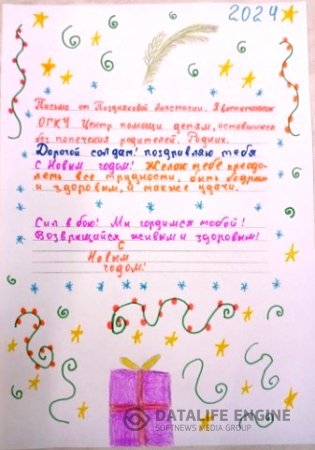 2024
Письмо от Поздняковой Анастасии. Я воспитанник
ОГКУ Центр помощи детям, оставшимся
без попечения родителей. Родник.
Дорогой солдат! поздровляю тебя
С Новым годом! Желаю тебе преодо-
леть все трудности, быть бодрым
и здоровым, а также удачи.
Сил в бою! Мы гордимся тобой!
Возвращайся живым и здоровым!
С
Новым
годом!
DATALIFE ENGINE
SOFTNEWS MEDIA GROUP